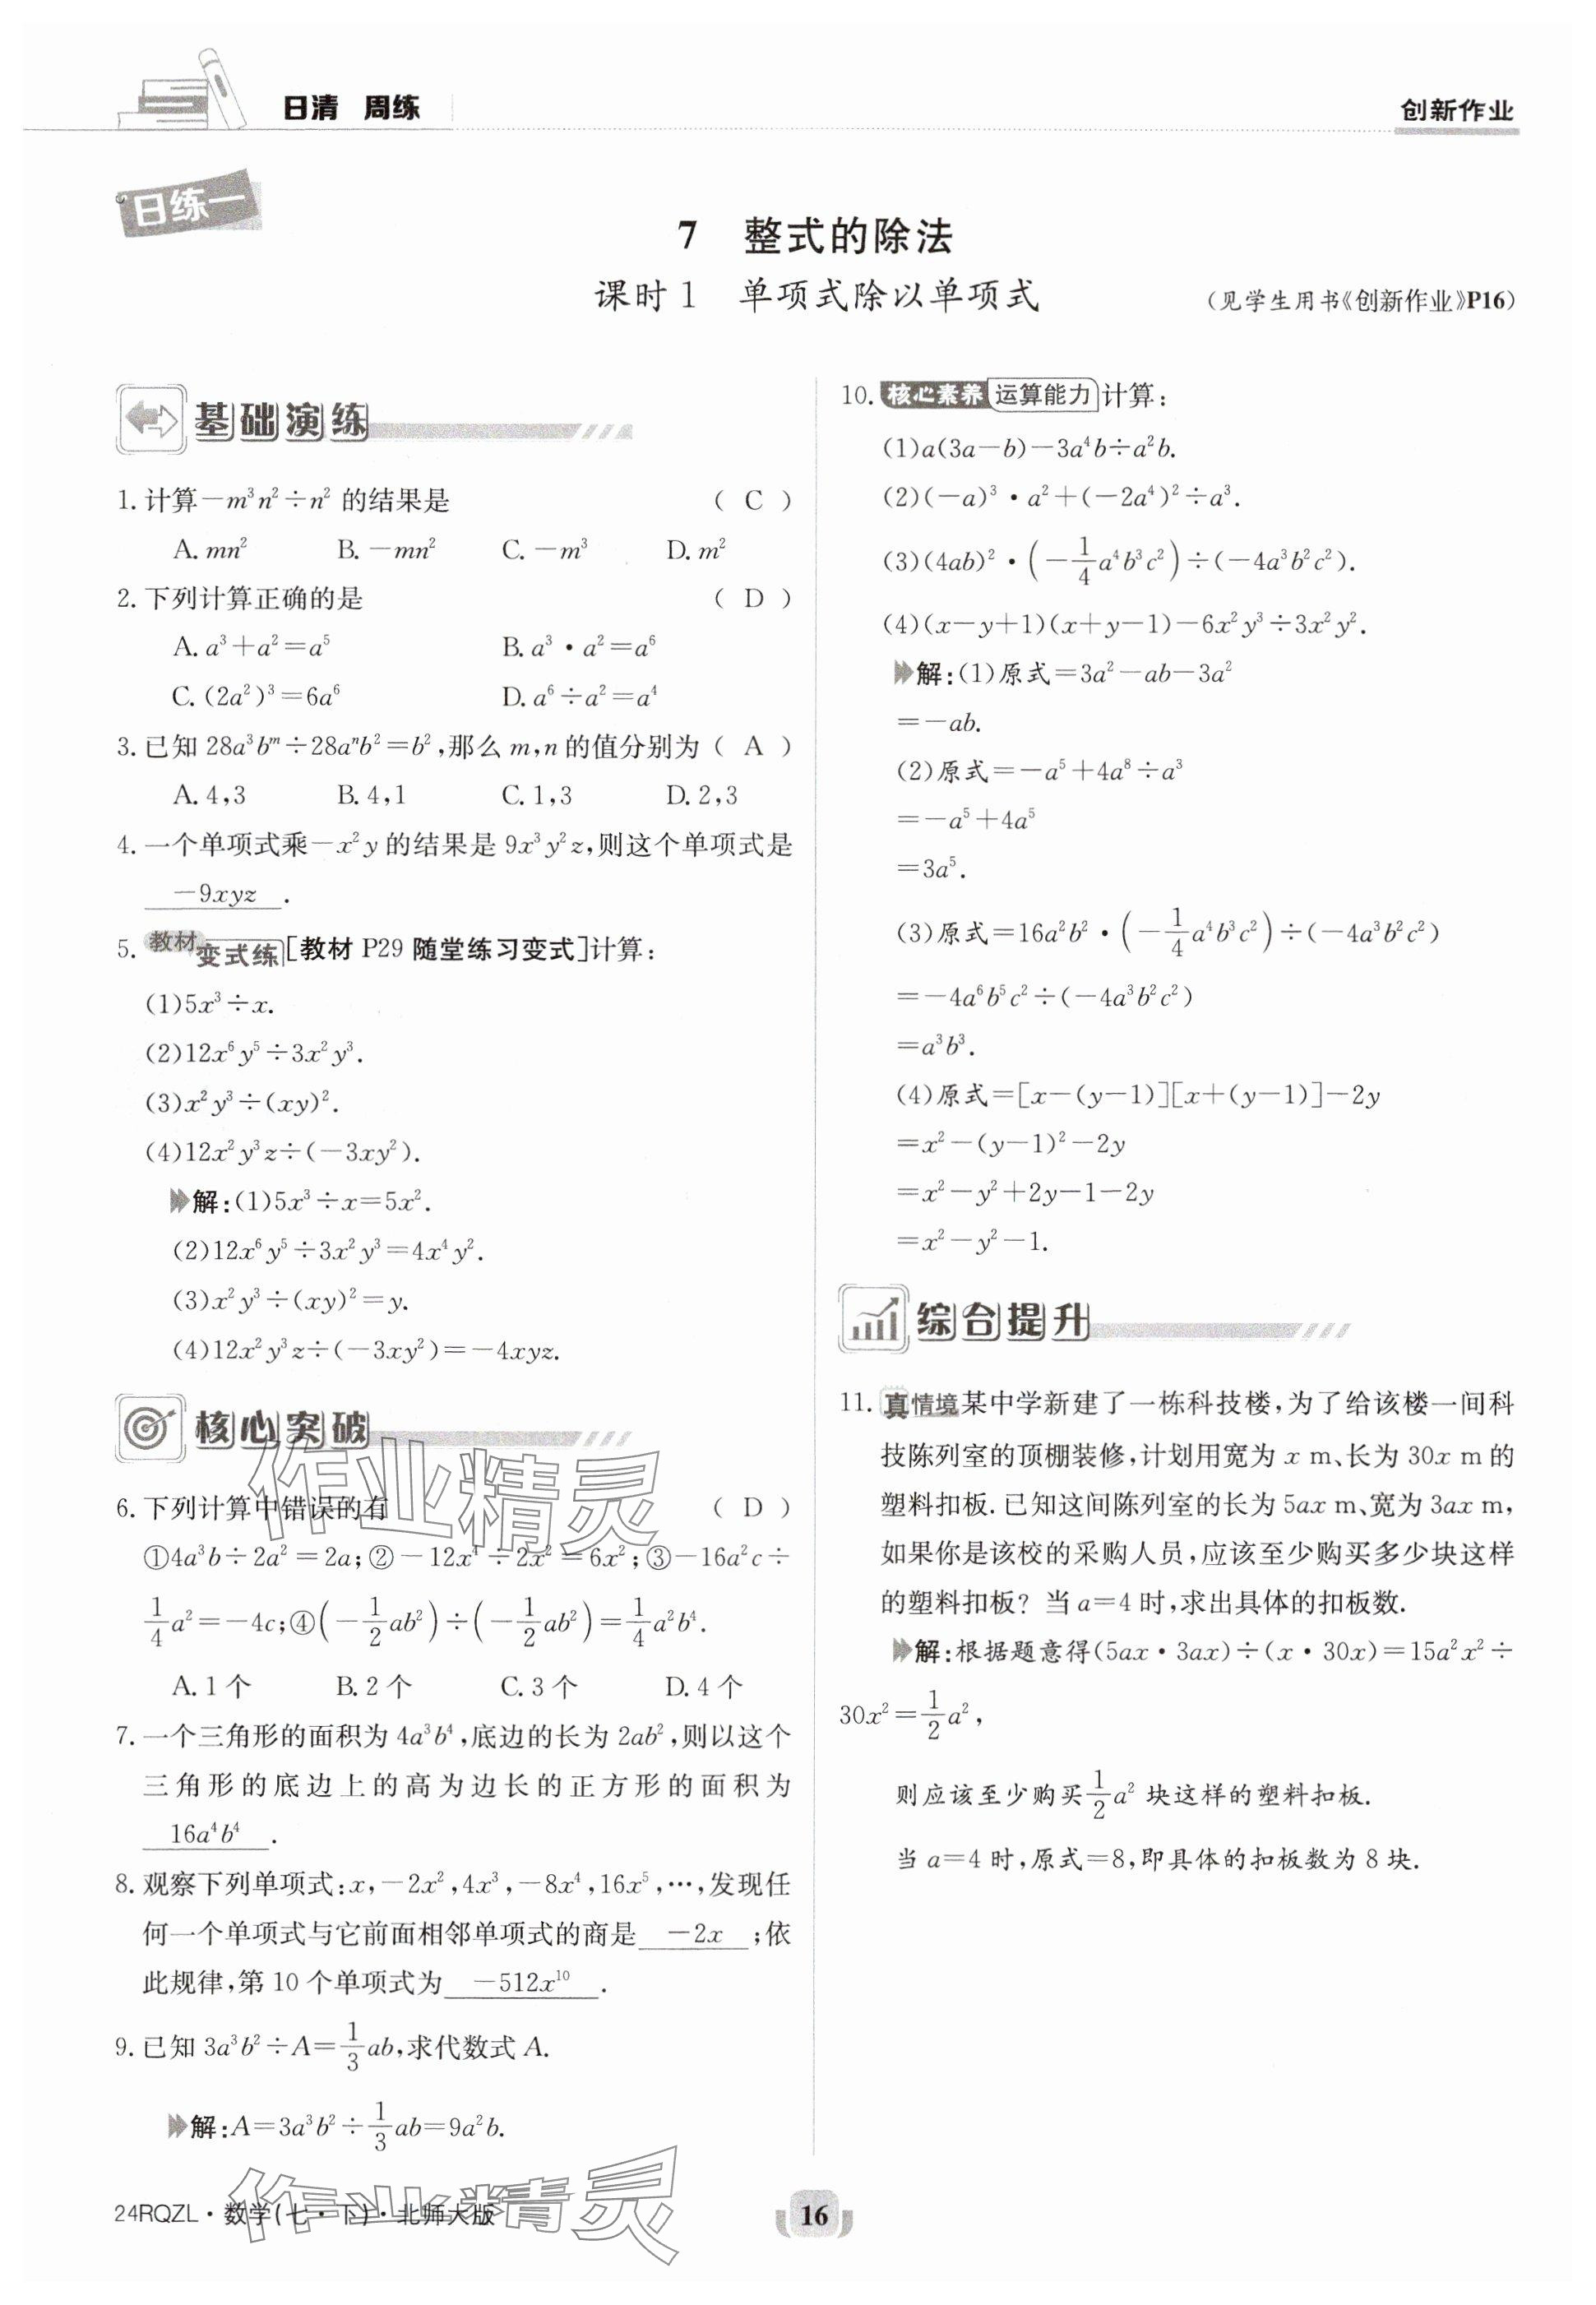 日清 周练
创新作业
日练一
7 整式的除法
课时1 单项式除以单项式 (见学生用书《创新作业》P16)
基础演练
1. 计算－m³n²÷n² 的结果是 ( C )
A. mn² B. －mn² C. －m³ D. m²
2. 下列计算正确的是 ( D )
A. a³＋a²＝a⁵ B. a³·a²＝a⁶
C. (2a²)³＝6a⁶ D. a⁶÷a²＝a⁴
3. 已知 28a³bᵐ÷28aⁿb²＝b²,那么 m,n 的值分别为 ( A )
A. 4,3 B. 4,1 C. 1,3 D. 2,3
4. 一个单项式乘－x²y 的结果是 9x³y²z,则这个单项式是
－9xyz .
5. 教材变式练[教材 P29 随堂练习变式]计算:
(1)5x³÷x.
(2)12x⁶y⁵÷3x²y³.
(3)x²y³÷(xy)².
(4)12x²y³z÷(－3xy²).
解:(1)5x³÷x＝5x².
(2)12x⁶y⁵÷3x²y³＝4x⁴y².
(3)x²y³÷(xy)²＝y.
(4)12x²y³z÷(－3xy²)＝－4xyz.
核心突破
6. 下列计算中错误的有 ( D )
①4a³b÷2a²＝2a;②－12x⁴÷2x²＝6x²;③－16a²c÷
1/4 a²＝－4c;④(－1/2 ab²)÷(－1/2 ab²)＝1/4 a²b⁴.
A. 1 个 B. 2 个 C. 3 个 D. 4 个
7. 一个三角形的面积为 4a³b⁴,底边的长为 2ab²,则以这个
三角形的底边上的高为边长的正方形的面积为
16a⁴b⁴ .
8. 观察下列单项式:x,－2x²,4x³,－8x⁴,16x⁵,…,发现任
何一个单项式与它前面相邻单项式的商是 －2x ;依
此规律,第 10 个单项式为 －512x¹⁰ .
9. 已知 3a³b²÷A＝1/3 ab,求代数式 A.
解:A＝3a³b²÷1/3 ab＝9a²b.
10. 核心素养 运算能力 计算:
(1)a(3a－b)－3a⁴b÷a²b.
(2)(－a)³·a²＋(－2a⁴)²÷a³.
(3)(4ab)²·(－1/4 a⁴b³c²)÷(－4a³b²c²).
(4)(x－y＋1)(x＋y－1)－6x²y³÷3x²y².
解:(1)原式＝3a²－ab－3a²
＝－ab.
(2)原式＝－a⁵＋4a⁸÷a³
＝－a⁵＋4a⁵
＝3a⁵.
(3)原式＝16a²b²·(－1/4 a⁴b³c²)÷(－4a³b²c²)
＝－4a⁶b⁵c²÷(－4a³b²c²)
＝a³b³.
(4)原式＝[x－(y－1)][x＋(y－1)]－2y
＝x²－(y－1)²－2y
＝x²－y²＋2y－1－2y
＝x²－y²－1.
综合提升
11. 真情境 某中学新建了一栋科技楼,为了给该楼一间科
技陈列室的顶棚装修,计划用宽为 x m、长为 30x m 的
塑料扣板.已知这间陈列室的长为 5ax m、宽为 3ax m,
如果你是该校的采购人员,应该至少购买多少块这样
的塑料扣板? 当 a＝4 时,求出具体的扣板数.
解:根据题意得(5ax·3ax)÷(x·30x)＝15a²x²÷
30x²＝1/2 a²,
则应该至少购买 1/2 a² 块这样的塑料扣板.
当 a＝4 时,原式＝8,即具体的扣板数为 8 块.
作业精灵
作业精灵
24RQZL·数学(七·下)·北师大版
16